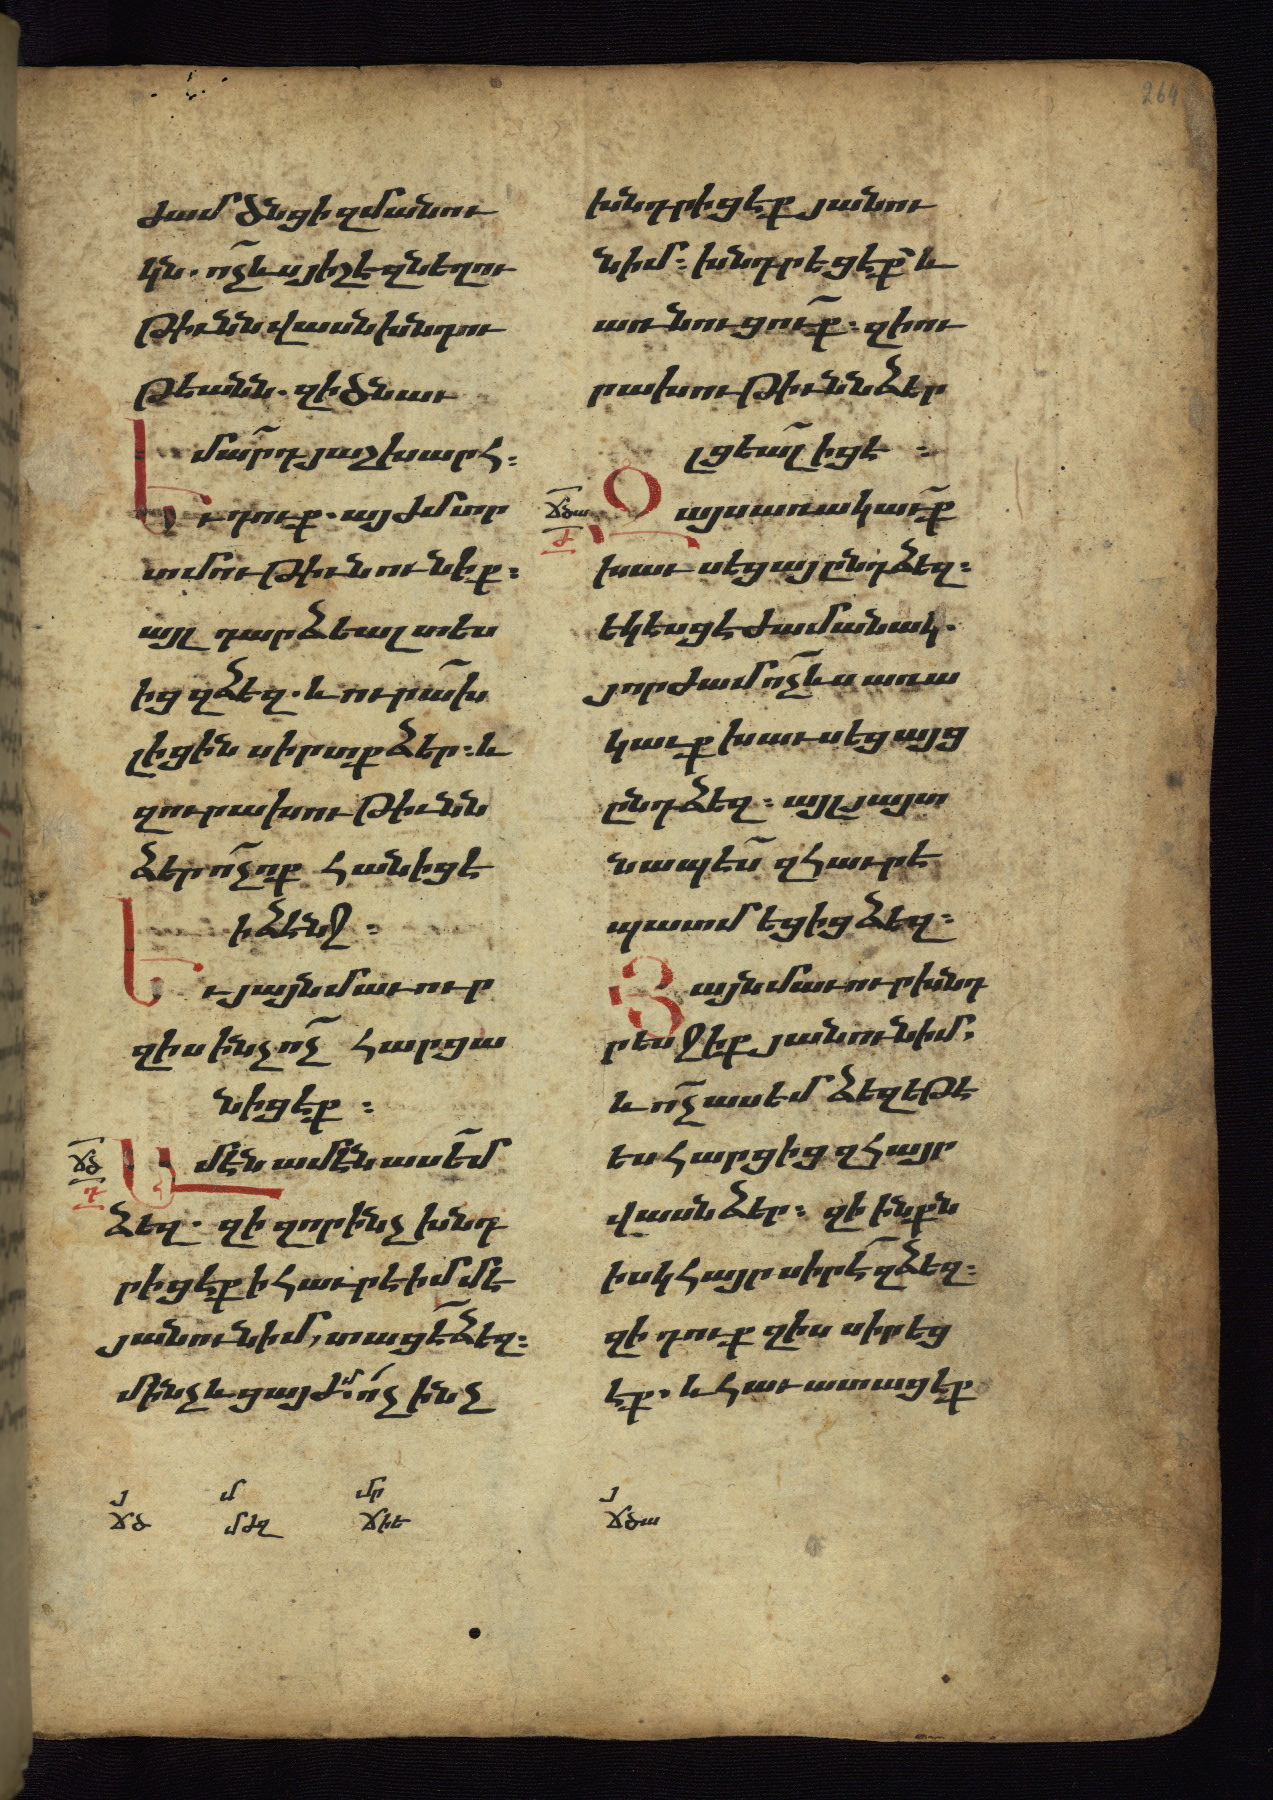 264
ժամ ծնցի զմանու
կն. ո՞չ ևս յիշէ զնեղու
թիւնն վասն խնդու
թեանն. զի ծնաւ
մա՞րդ յաշխարհ։
Եւ դուք. այժմ տր
տմութիւն ունիք։
այլ դարձեալ տես
ից զձեզ. և ուրա՞խ
լիցին սիրտք ձեր։ և
զուրախութիւնն
ձեր ո՞չ ոք հանիցէ
ի ձէնջ։
Եւ յայնմ աւուր
զիս ինչ ո՞չ հարցա
նիցէք։
ՃԾ
Դ
Ամէն ամէն ասե՞մ
ձեզ. զի զոր ինչ խնդ
րիցէք ի հաւրէ իմմէ
յանուն իմ, տացէ՞ ձեզ։
մինչև ցայժմ. ո՛չ ինչ
խնդրիցէք յանու
ն իմ։ խնդրեցէք՝ և
առնուցու՞ք. զի ու
րախութիւնն ձեր
լցեա՞լ իցէ ։
ՃԾԱ
Ժ
Զայս առակաւ՞ք
խաւսեցայ ընդ ձեզ։
եկեսցէ ժամանակ.
յորժամ ո՞չ ևս առա
կաւք խաւսեցայց
ընդ ձեզ։ այլ յայտ
նապէս՞ զհաւրէ
պատմեցից ձեզ։
Յայնմ աւուր խնդ
րեսջիք յանուն իմ,
և ո՞չ ասեմ ձեզ եթէ
ես հարցից զհայր
վասն ձեր։ զի ինքն
իսկ հայր սիրէ՞ զձեզ։
զի դուք զիս սիրեց
էք. և հաւատացէք
յ մ մր յ
ՃԾ ՄԺԶ ՃԻԵ ՃԾԱ